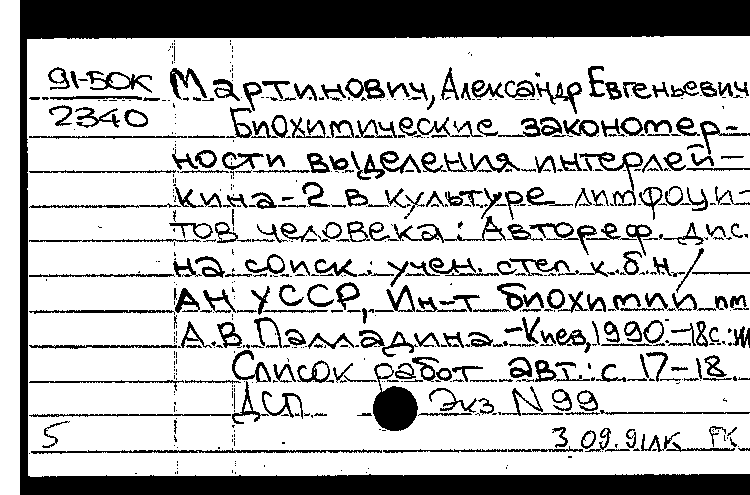 91-50К Мартинович, Александр Евгеньевич
2340 Биохимические закономер-
ности выделения интерлей-
кина-2 в культуре лимфоци-
тов человека: Автореф. дис.
на соиск. учен. степ. к.б.н. /
АН УССР, Ин-т биохимии им
А.В Палладина.-Киев, 1990.-18с.:
Список работ авт.: с. 17-18.
ДСП Экз N 99.
5 3.09.91 ЛК РК